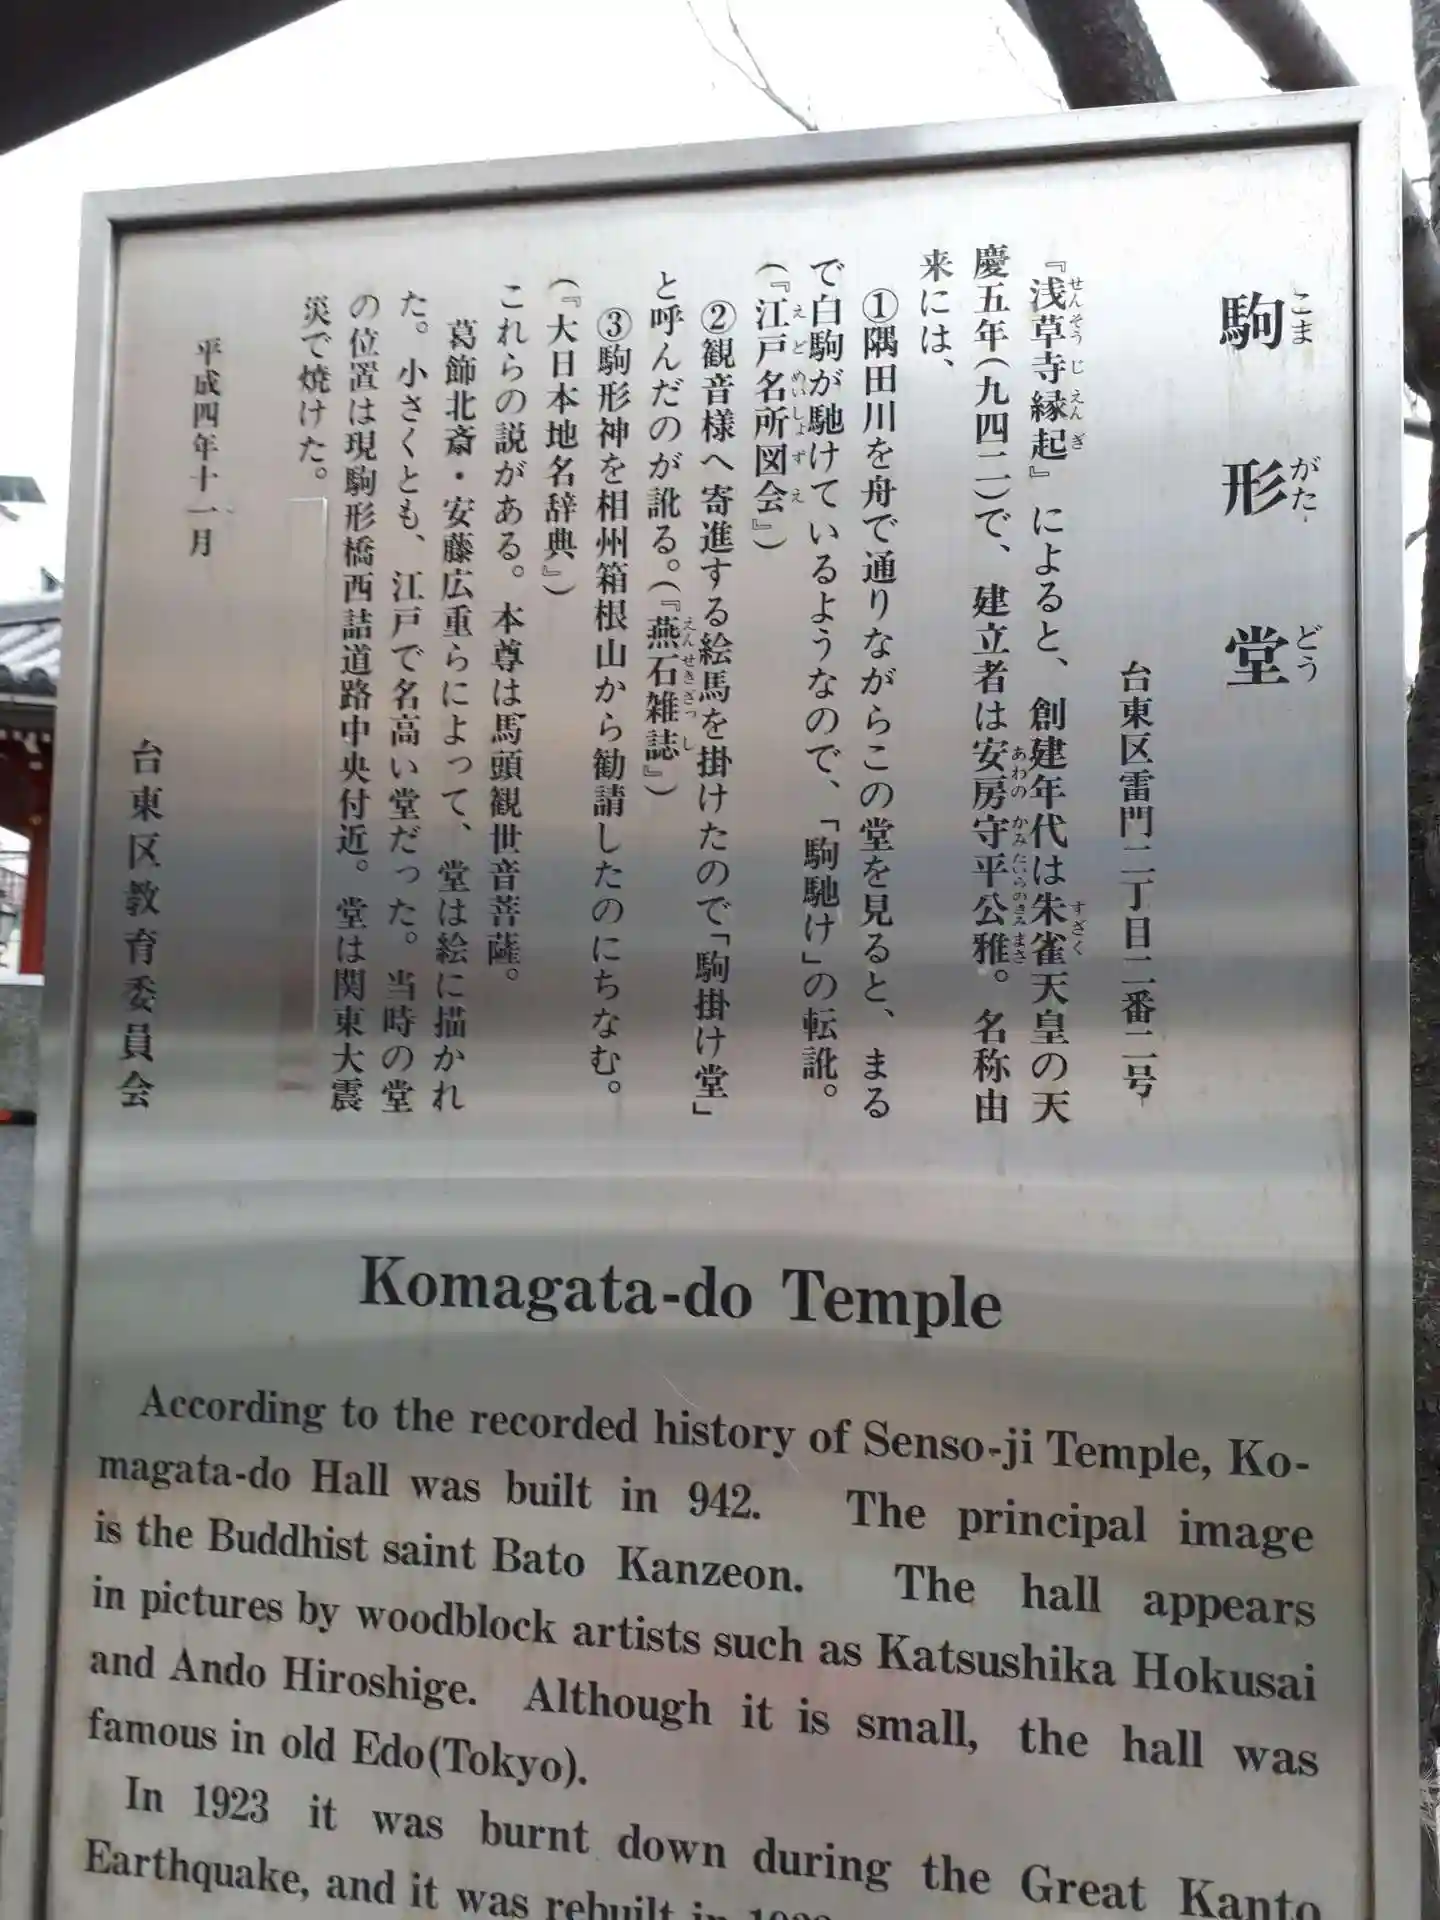 駒形堂
こまがたどう
台東区雷門二丁目二番二号
『浅草寺縁起』によると、創建年代は朱雀天皇の天
せんそうじえんぎ すざく
慶五年(九四二)で、建立者は安房守平公雅。名称由
あわのかみたいらのきみまさ
来には、
①隅田川を舟で通りながらこの堂を見ると、まる
で白駒が馳けているようなので、「駒馳け」の転訛。
(『江戸名所図会』)
えどめいしょずえ
②観音様へ寄進する絵馬を掛けたので「駒掛け堂」
と呼んだのが訛る。(『燕石雑誌』)
えんせきざっし
③駒形神を相州箱根山から勧請したのにちなむ。
(『大日本地名辞典』)
これらの説がある。本尊は馬頭観世音菩薩。
葛飾北斎・安藤広重らによって、堂は絵に描かれ
た。小さくとも、江戸で名高い堂だった。当時の堂
の位置は現駒形橋西詰道路中央付近。堂は関東大震
災で焼けた。
平成四年十一月
台東区教育委員会
Komagata-do Temple
According to the recorded history of Senso-ji Temple, Ko-
magata-do Hall was built in 942. The principal image
is the Buddhist saint Bato Kanzeon. The hall appears
in pictures by woodblock artists such as Katsushika Hokusai
and Ando Hiroshige. Although it is small, the hall was
famous in old Edo(Tokyo).
In 1923 it was burnt down during the Great Kanto
Earthquake, and it was rebuilt in